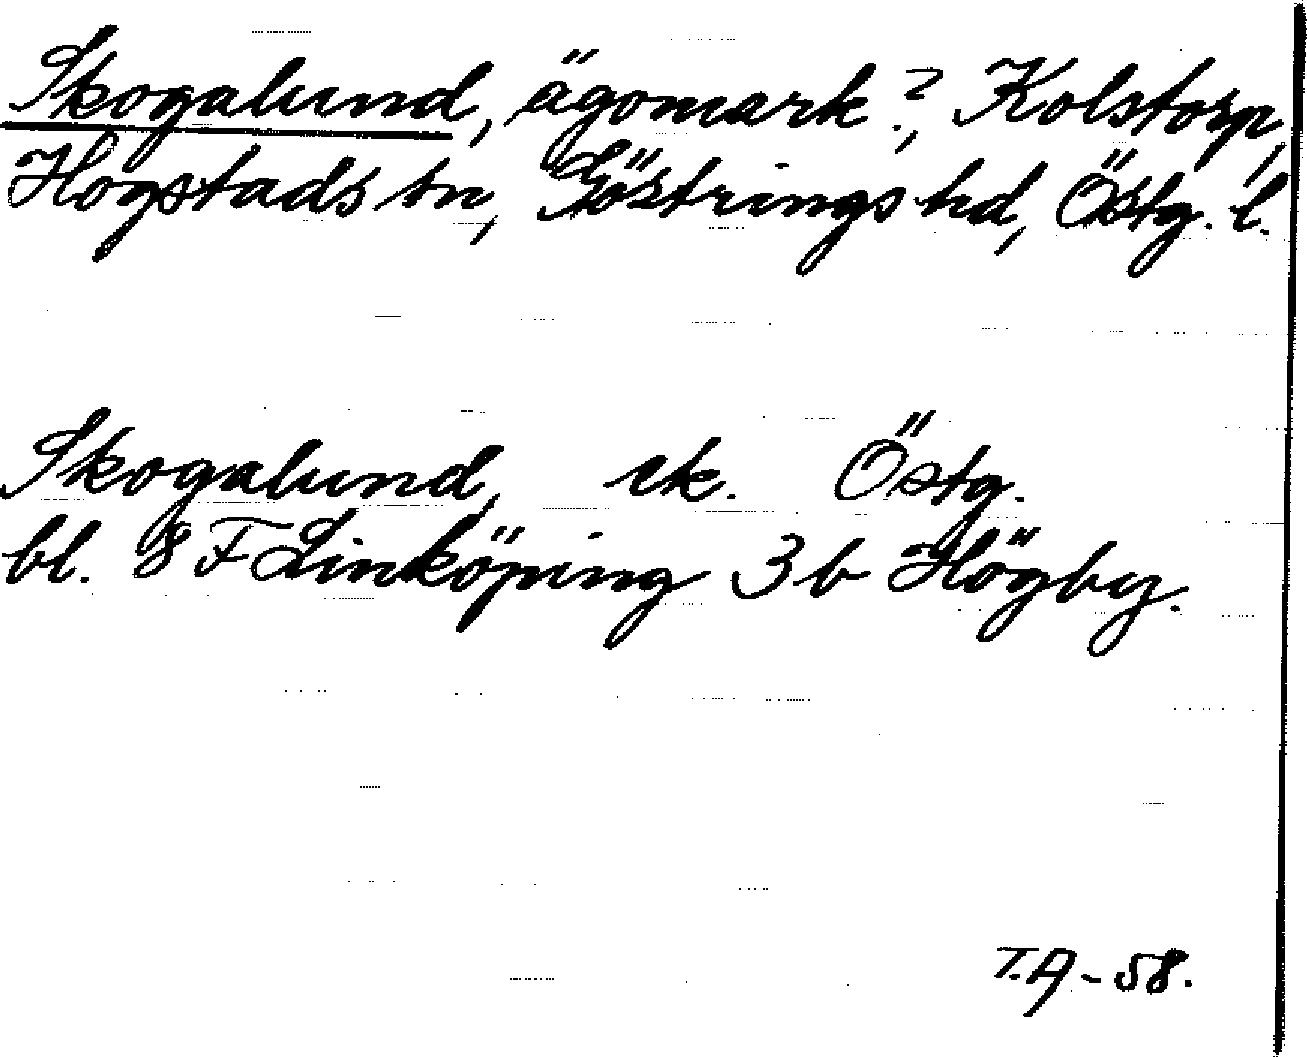 Skogalund, ägomark?, Kolstorp,
Hogstads sn, Göstrings hd, Östg. l.
Skogalund, ek. Östg.
bl. 8 F Linköping 3 b Högby.
T.A-58.